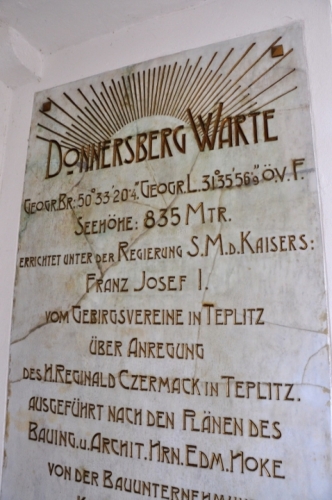 DONNERSBERG WARTE
GEOGR.BR: 50°33'20·4" GEOGR.L. 31°35'56·9" Ö.V.F.
SEEHÖHE: 835 MTR.
ERRICHTET UNTER DER REGIERUNG S.M.D. KAISERS:
FRANZ JOSEF I.
VOM GEBIRGSVEREINE IN TEPLITZ
ÜBER ANREGUNG
DES H. REGINALD CZERMACK IN TEPLITZ.
AUSGEFÜHRT NACH DEN PLÄNEN DES
BAUING. U. ARCHIT. HRN. EDM. HOKE
VON DER BAUUNTERNEHMUN